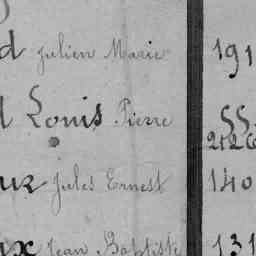 d Julien Marie 191
d Louis Pierre
ux Jules Ernest 140
ux Jean Baptiste 131